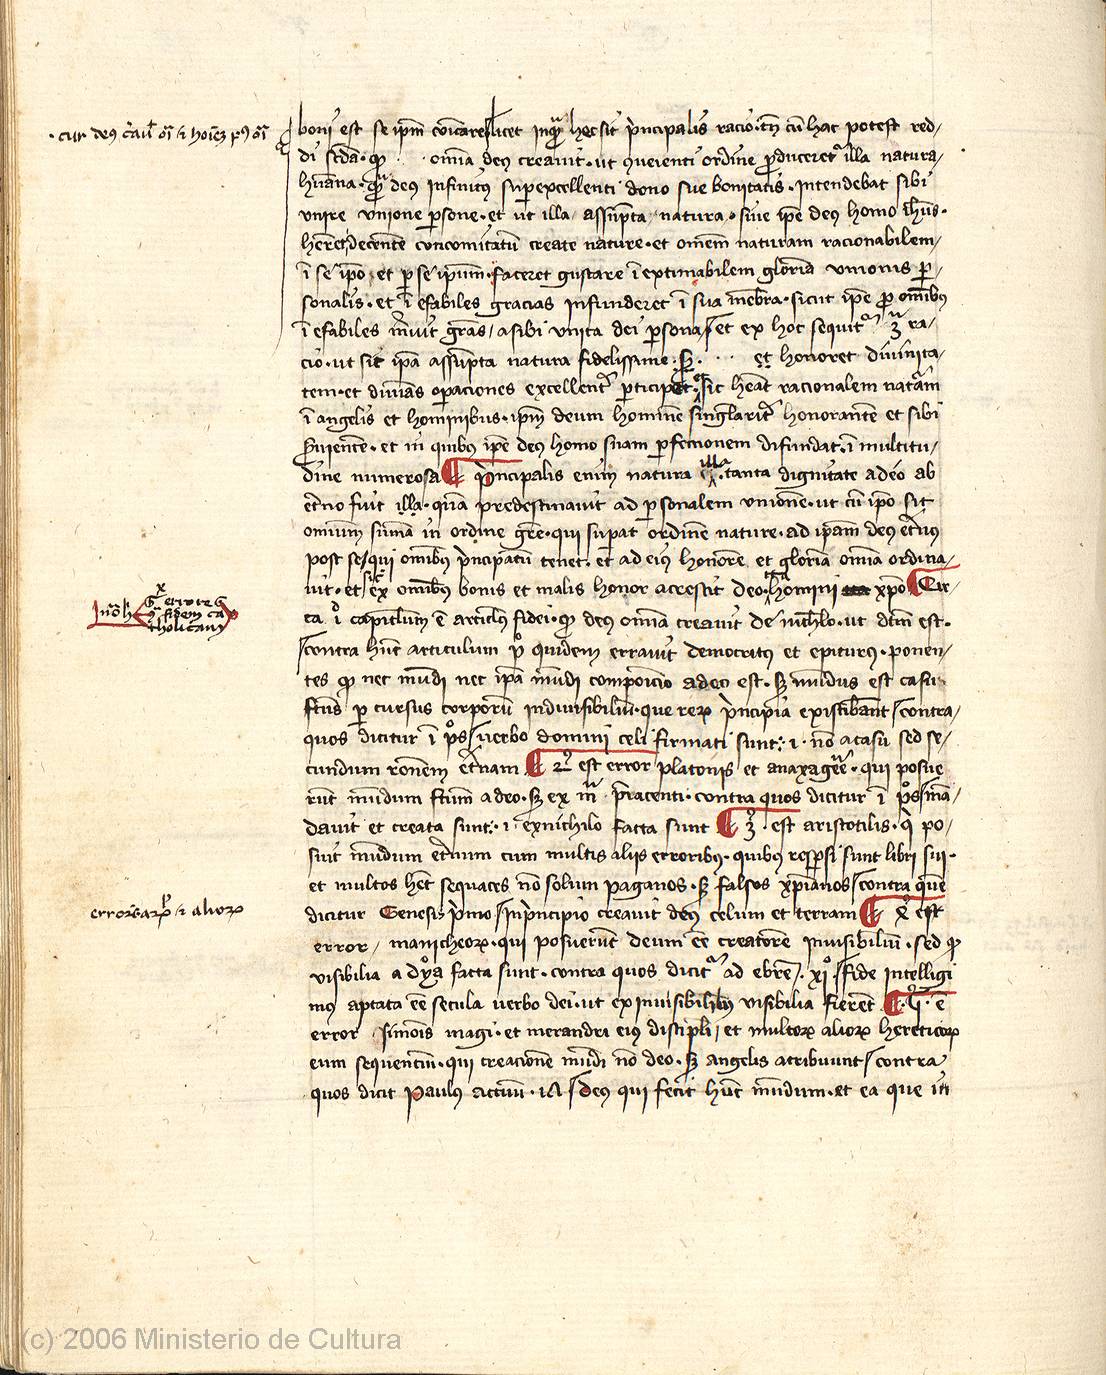 boni est se ipm cōicare licet inqr̄ hec sit prīncipalis racio · tn̄ cū hac potest red-
di scda · qr omnia deus creauit · ut queienti ordine produceretr illa natura
humana · qr deus infinitus supexcellenti dono sue bonitatis · intendebat sibi
unire unione psone · et ut illa assūpta natura · siue ipe deus homo ihus ·
heret decentē concomitatū create nature · et omem naturam racionabilem
ī se ipo et p se ipum faceret gustare īextimabilem gloriā unionis p-
sonalis · et īefabiles gracias infunderet ī sua mēbra · sicut ipe pro omibus
īefabiles meruit gras / a sibi unita dei psona / et ex hoc sequitr 3a ra-
cio · ut sit ipa assūpta natura fidelissime · sz · et honoret diuinita-
tem · et diuinas opaciones excellentr pticipet · sic heat racionalem naturam
ī angelis et hominibus · ipm deum hominē singlaritr honorantē et sibi
seruientē · et in quibus ipe deus homo suam pfectionem difundat · ī multitu-
dine numerosa ¶ principalis enim natura illa · tanta dignitate a deo ab
etno fuit illa · quā predestinauit ad psonalem unionē · ut cū ipo sit
omium suma in ordine gre · qui supat ordinē nature · ad ipam deus etnus
post se / qui omibus principatū tenet · et ad eius honorē et gloriā omia ordina-
uit · et sic ex omibus bonis et malis honor acrescit deo · et homini xpo ¶ Cir-
ca io capitlum ē articlus fidei · qr deus omia creauit de nichilo · ut dcm est ·
contra hūc articulum po quidem errauit democritus et epiturus · ponen-
tes qr nec mūdi nec ipa mūdi compoicio a deo est · sz mūdus est casu
fcus p cursus corporum indiuisibiliū · que rerum principia existibant / contra
quos dicitur ī ps / uerbo domini celi firmati sunt · i · nō a casu sed se-
cundum ronem etnam ¶ 2us est error platonis et anaxagore · qui posue
rūt mūdum fcum a deo · sz ex ma priacenti · contra quos dicitur ī ps / mā-
dauit et creata sunt · i · ex nichilo facta sunt ¶ 3 · est aristotilis · qi po-
suit mūdum etnum cum multis aliis erroribus · quibus respersi sunt libri sui ·
et multos het sequaces nō solum paganos · sz falsos xpianos / contra quem
dicitur Genesis primo / In principio creauit deus celum et terram ¶ X est
error / manicheorum · qui posuerūt deum ēe creatorē inuisibiliū · sed qr
visibilia a dyo facta sunt · contra quos dicitr ad ebre · xio / fide intelligi
mus aptata ēe secula uerbo dei · ut ex inuisibilibus visibilia fierēt ¶ ē
error simōis magi · et merandri eius discipli / et multorum aliorum hereticorum
eum sequencium · qui creacionē mūdi nō deo · sz angelis atribuunt / contra
quos dicit Paulus actuū · / Deus qui fecit hūc mūdum · et ea que in
errore
fidem ca
tholicam
et aliorum
(c) 2006 Ministerio de Cultura